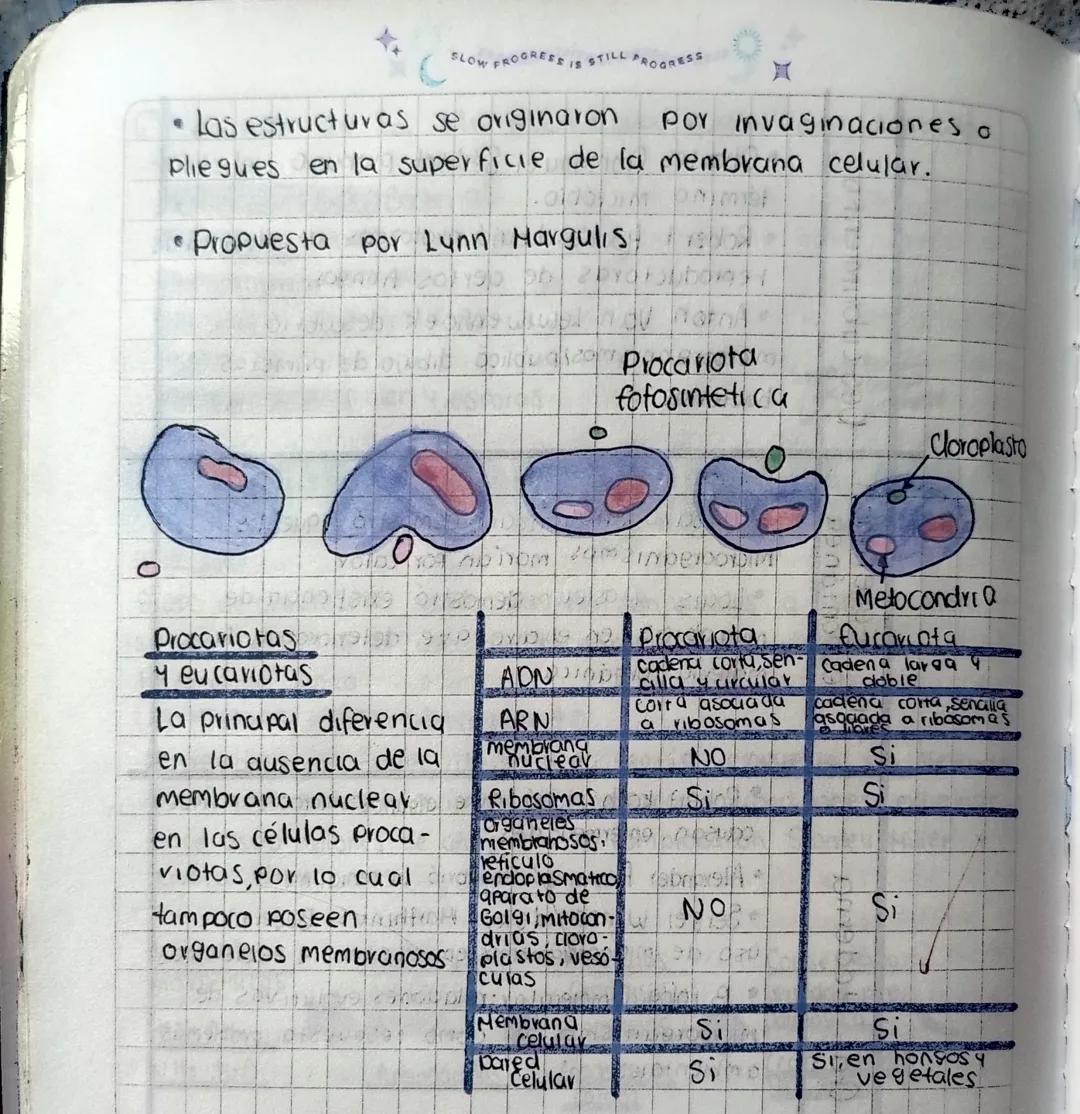 SLOW PROGRESS IS STILL PROGRESS
• Las estructuras se originaron por invaginaciones o
pliegues en la superficie de la membrana celular.
• Propuesta por Lynn Margulis
Procariota
fotosintetica
Cloroplasto
Metocondria
Procariotas
y eucariotas
La principal diferencia
en la ausencia de la
membrana nuclear
en las células proca-
riotas, por lo cual
tampoco poseen
organelos membranosos
Procariota Eucariota
ADN cadena corta, sen-
cilla y circular
cadena larga y
doble
ARN corta asociada
a ribosomas
cadena corta, sencilla
asociada a ribosomas
o libres
membrana
nuclear NO Si
Ribosomas Si Si
organeles
membranosos,
reticulo
endoplasmatico
aparato de
Golgi, mitocon-
drias, cloro-
plastos, vesó-
culas
NO Si
Membrana
celular Si Si
pared
celular Si Si, en hongos y
vegetales